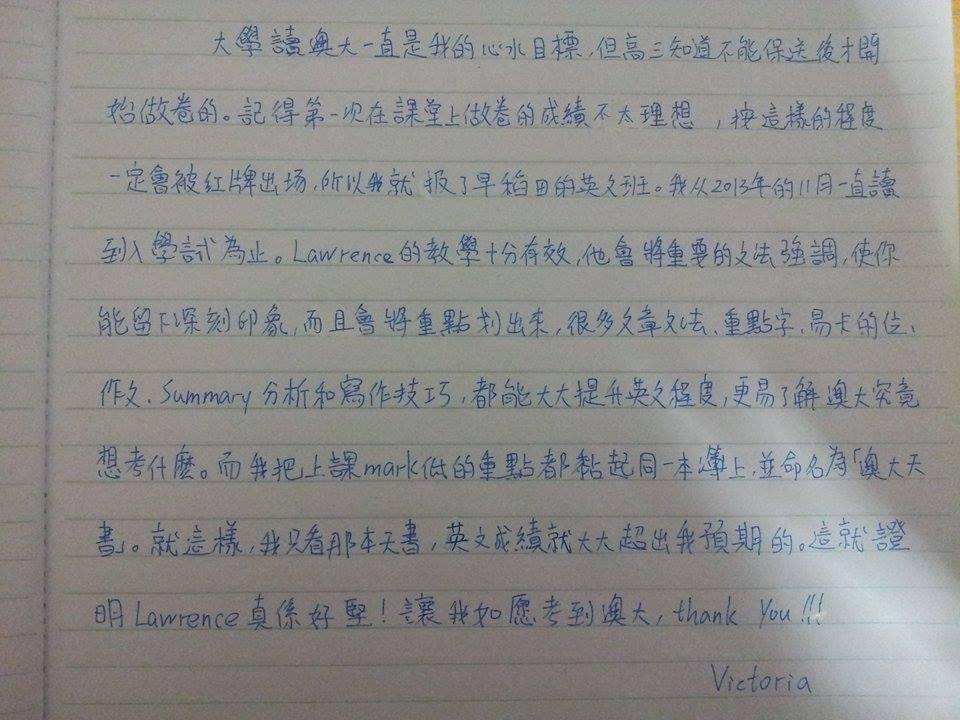 大學讀澳大一直是我的心水目標，但高三知道不能保送後才開
始做卷的。記得第一次在課堂上做卷的成績不太理想，按這樣的程度
一定會被红牌出场，所以我就报了早稻田的英文班。我从2013年的11月一直讀
到入學試為止。Lawrence的教學十分有效，他會將重要的文法強調，使你
能留下深刻印象，而且會將重點划出來，很多文章文法、重點字、易卡的位、
作文、Summary分析和寫作技巧，都能大大提升英文程度，更易了解澳大究竟
想考什麼。而我把上課mark低的重點都黏起同一本簿上，並命名為「澳大天
書」。就這樣，我只看那本天書，英文成績就大大超出我預期的。這就證
明Lawrence真係好堅！讓我如愿考到澳大，thank You!!!
Victoria